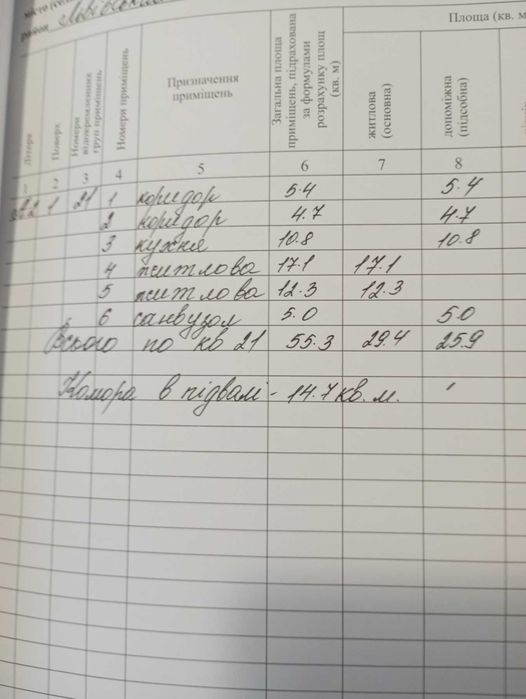 місто (сел
район Львівськ
Площа (кв. м
Літера
Поверх
Номери відокремлених груп приміщень
Номери приміщень
Призначення приміщень
Загальна площа приміщень, підрахована за формулами розрахунку площ (кв. м)
житлова (основна)
допоміжна (підсобна)
1 2 3 4 5 6 7 8
1 21 1 коридор 5.4 5.4
2 коридор 4.7 4.7
3 кухня 10.8 10.8
4 житлова 17.1 17.1
5 житлова 12.3 12.3
6 санвузол 5.0 5.0
Всього по кв 21 55.3 29.4 25.9
Комора в підвалі - 14.7 кв. м.